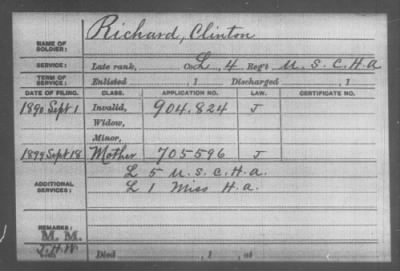 NAME OF SOLDIER: Richard, Clinton
SERVICE: Late rank, Co. L, 4 Reg't U.S.C.H.A
TERM OF SERVICE: Enlisted , 1 Discharged , 1
DATE OF FILING. CLASS. APPLICATION NO. LAW. CERTIFICATE NO.
1890 Sept 1 Invalid, 904.824 J
Widow,
Minor,
1899 Sept 18 Mother 705596 J
ADDITIONAL SERVICES: L 5 U.S.C.H.A.
L 1 Miss H.A.
REMARKS:
M. M.
J.H.W.
Died , 1 , at